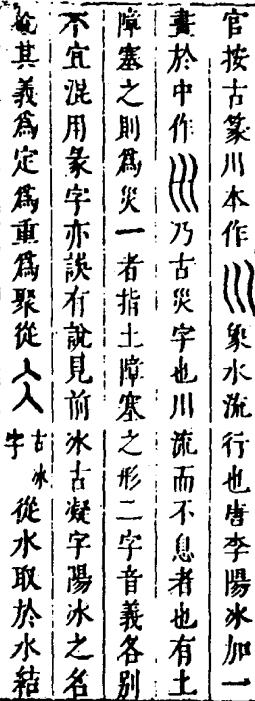 官按古篆川本作巛象水流行也唐李陽冰加一
畫於中作𡿧乃古災字也川流而不息者也有土
障塞之則為災一者指土障塞之形二字音義各别
不宜混用彖字亦誤有說見前冰古凝字陽冰之名
其義為定為重為聚從仌古冰字從水取於水結